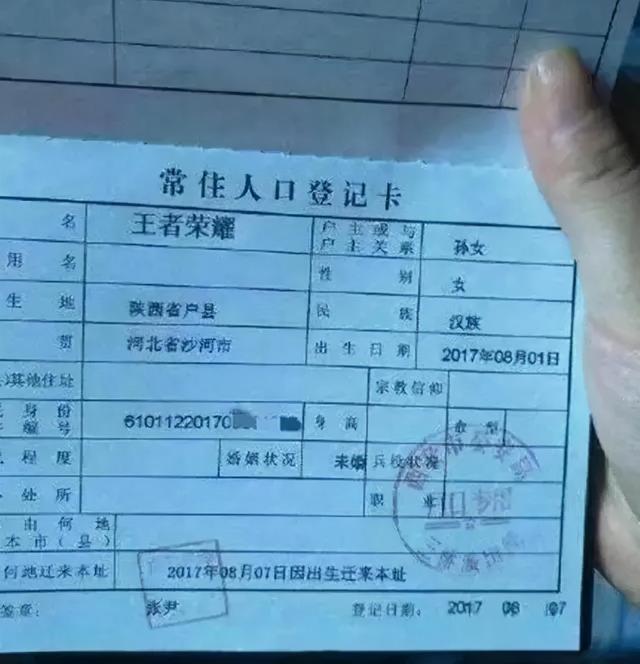 常住人口登记卡
名 王者荣耀 户主或与户主关系 孙女
用名 性别 女
生地 陕西省户县 民族 汉族
贯 河北省沙河市 出生日期 2017年08月01日
其他住址 宗教信仰
身份编号 61011220170 身高 血型
程度 婚姻状况 未婚 兵役状况
处所 职业
由何地
本市(县)
何地迁来本址 2017年08月07日因出生迁来本址
签章: 张尹 登记日期: 2017 08 07